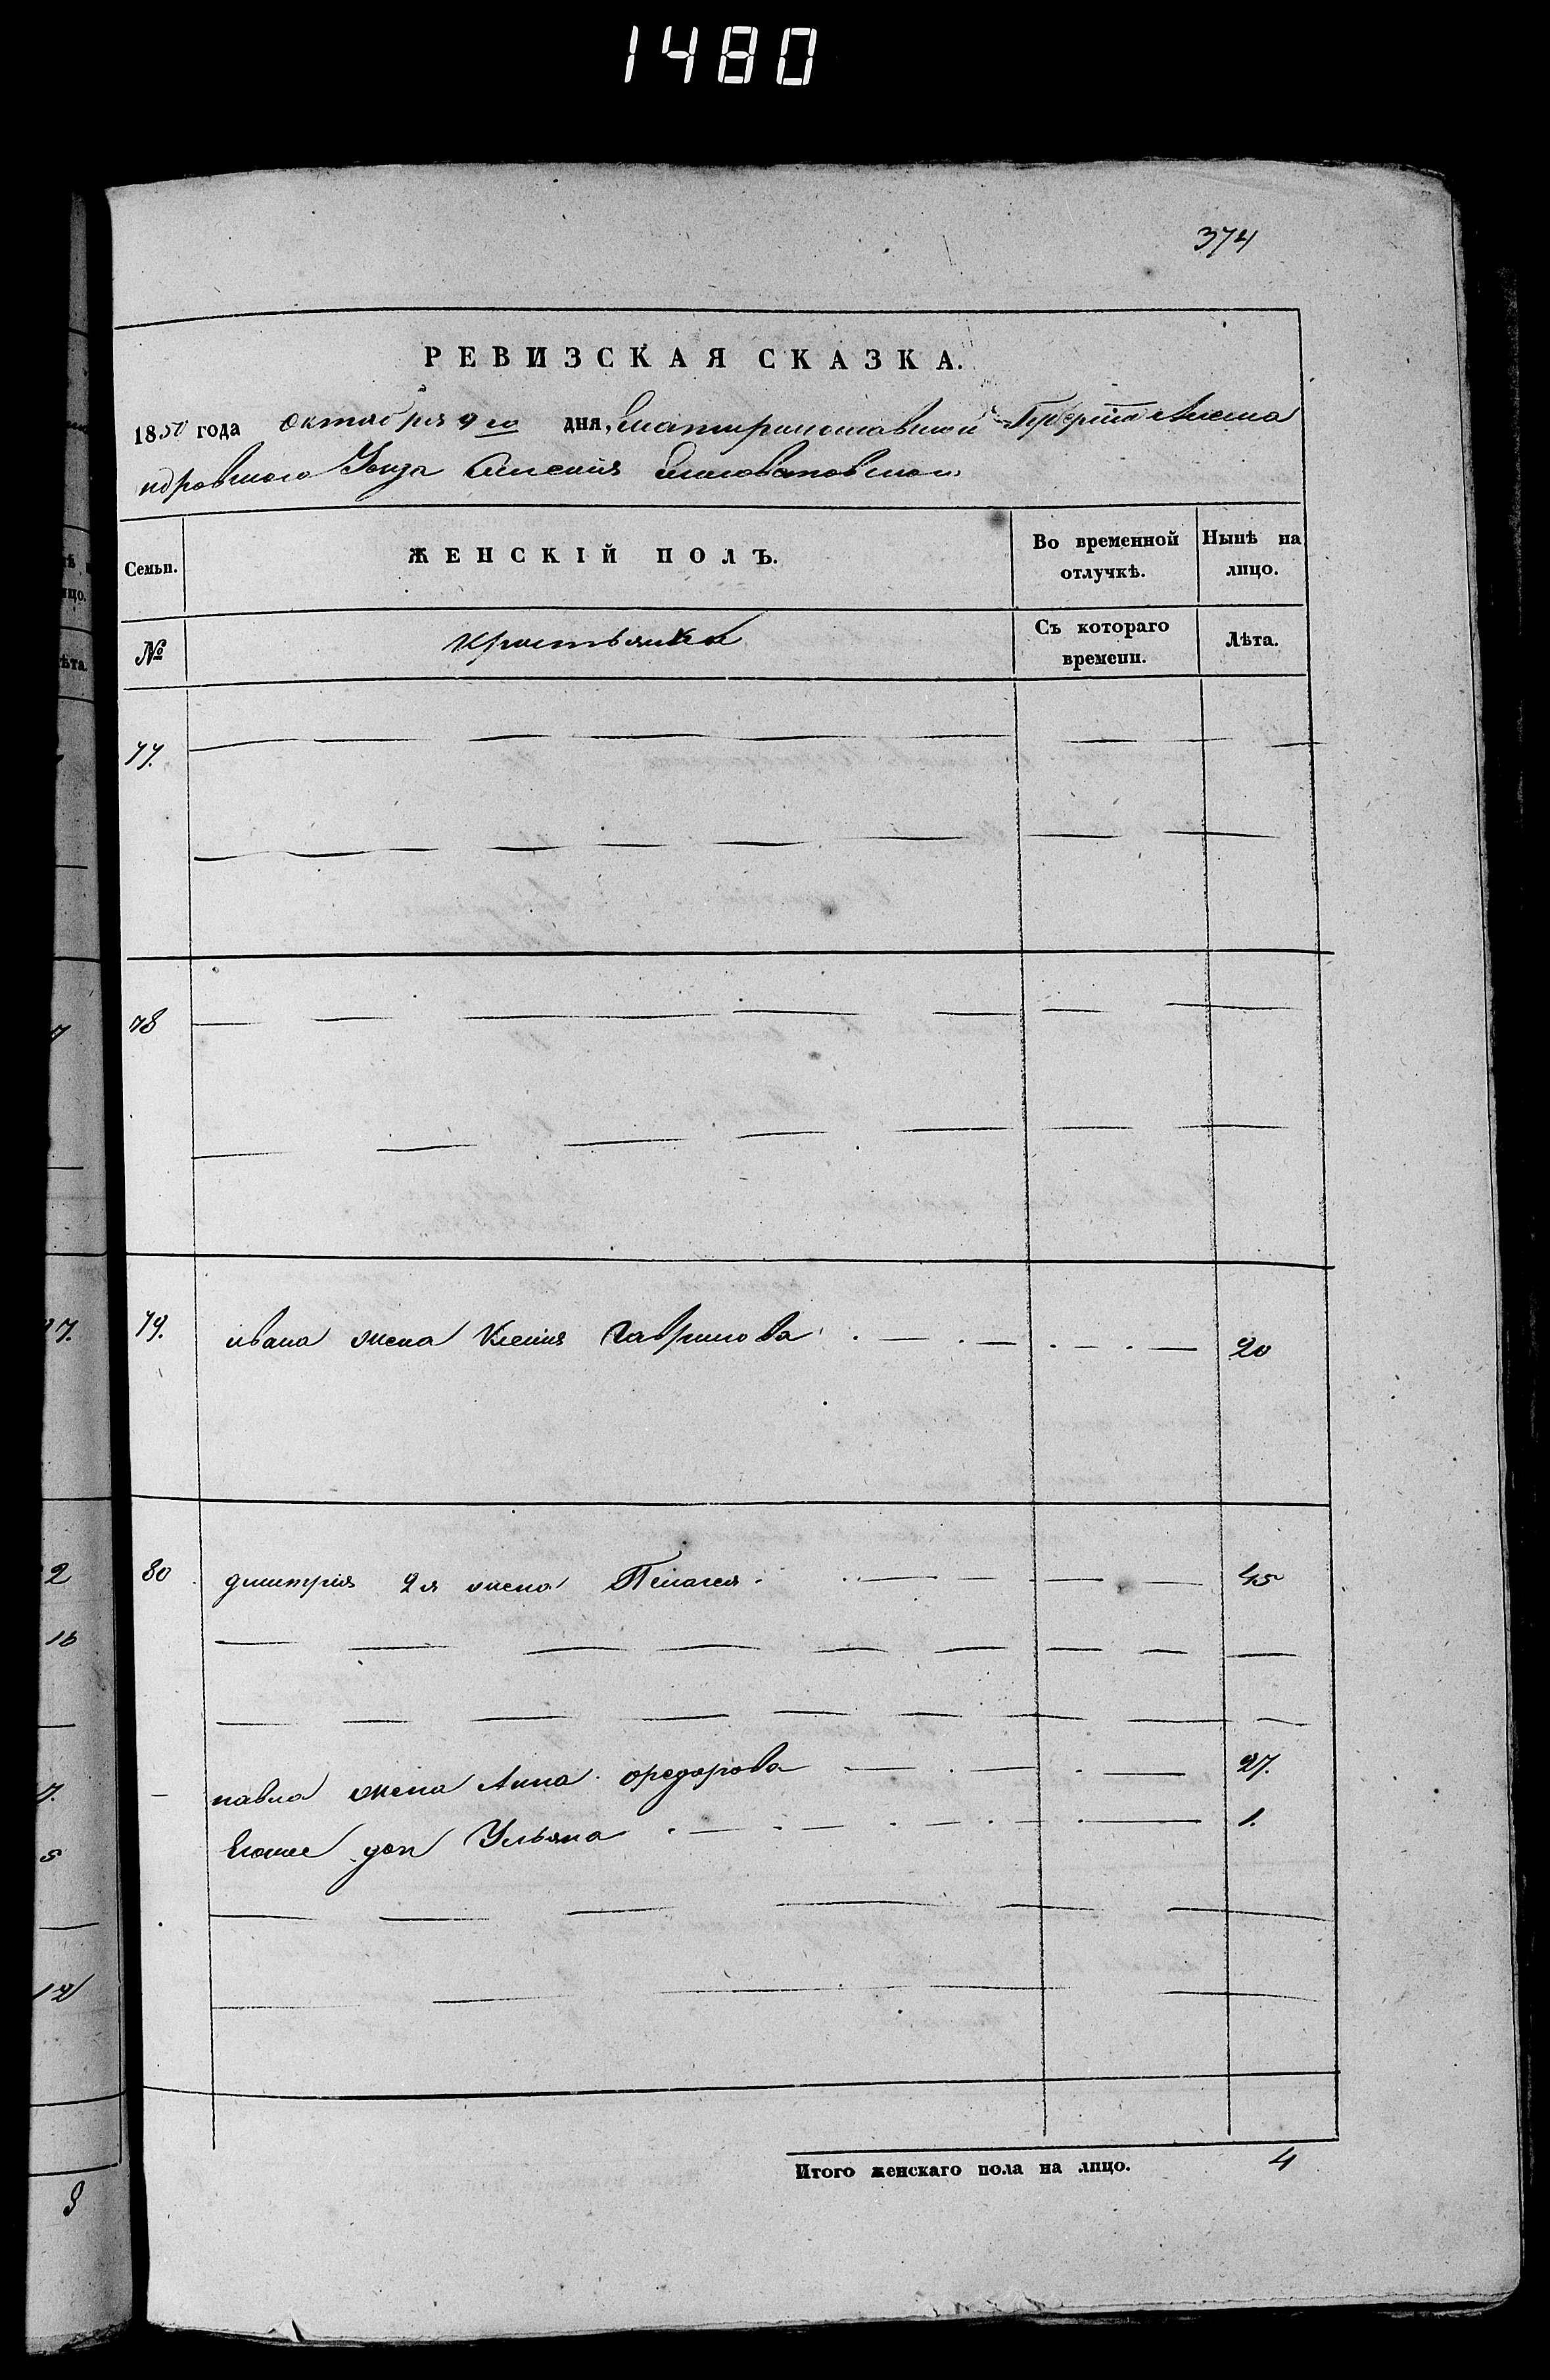 1480
374
РЕВИЗСКАЯ СКАЗКА.
1850 года октября 9го дня, Екатиринославской Губерніи Алекса
ндровского Уезда Селенія
Семьи. ЖЕНСКІЙ ПОЛЪ. Во временной отлучкѣ. Нынѣ на лицо.
№ Крестьянка Съ котораго времени. Лѣта.
77.
78
79. ивана жена Ксения Гаврилова 20
80 дмитрия 2я жена Пелагея 45
павла жена Анна федорова 27.
Егоже доч Ульяна 1.
Итого женскаго пола на лицо. 4